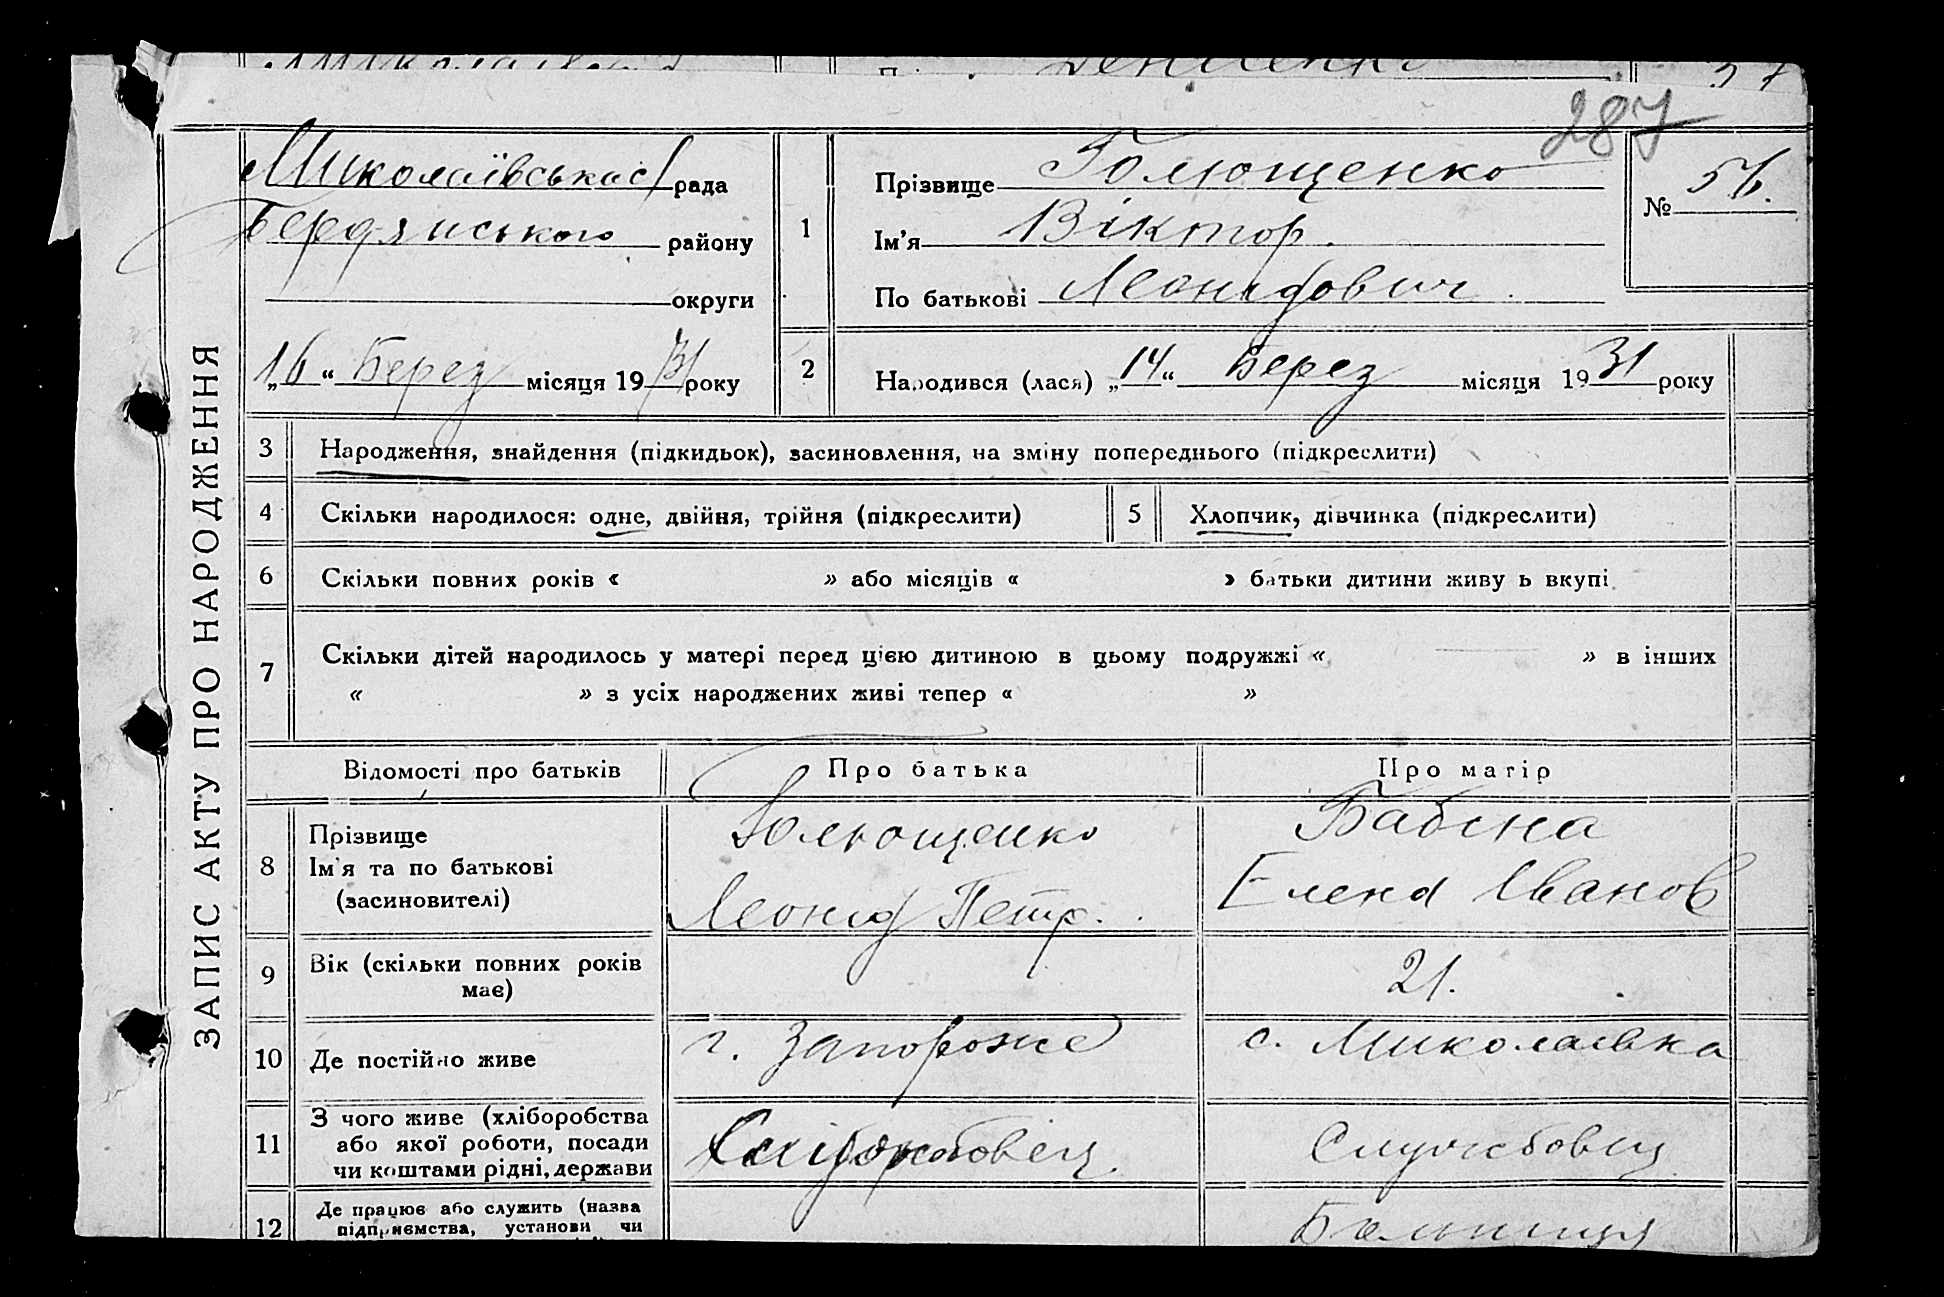 287
Миколаївська с/рада
Бердянського району
округи
„16“ Берез місяця 1931 року
1
Прізвище Голющенко
Ім'я Віктор.
По батькові Леонідович.
№ 56.
2
Народився (лася) „14“ Берез місяця 1931 року
ЗАПИС АКТУ ПРО НАРОДЖЕННЯ
3 Народження, знайдення (підкидьок), засиновлення, на зміну попереднього (підкреслити)
4 Скільки народилося: одне, двійня, трійня (підкреслити)
5 Хлопчик, дівчинка (підкреслити)
6 Скільки повних років « » або місяців « » батьки дитини живуть вкупі
7 Скільки дітей народилось у матері перед цією дитиною в цьому подружжі « — » в інших
« » з усіх народжених живі тепер « »
Відомості про батьків
Про батька
Про матір
8 Прізвище
Ім'я та по батькові
(засиновителі)
Голющенко
Леонід Петр.
Бабіна
Елена Іванов
9 Вік (скільки повних років
має)
21.
10 Де постійно живе
г. Запороже
с. Миколаївка
11 З чого живе (хліборобства
або якої роботи, посади
чи коштами рідні, держави
Службовец
12 Де працює або служить (назва
підприємства, установи чи
Больниця